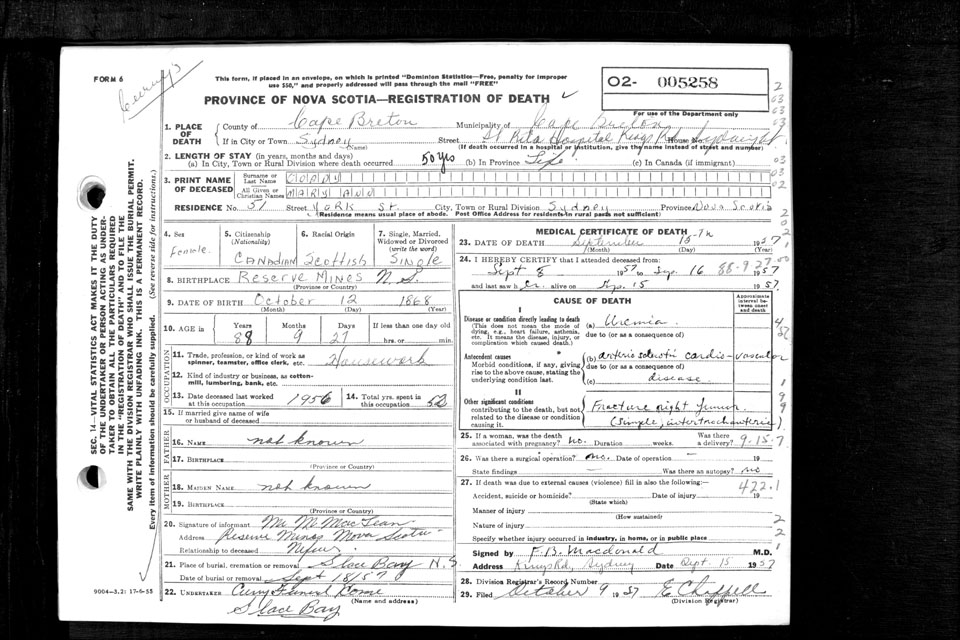 FORM 6
Curry's
This form, if placed in an envelope, on which is printed "Dominion Statistics—Free, penalty for improper
use $50," and properly addressed will pass through the mail "FREE"
O2- 005258
For use of the Department only
PROVINCE OF NOVA SCOTIA—REGISTRATION OF DEATH
1. PLACE OF DEATH
County of Cape Breton Municipality of Cape Breton
If in City or Town Sydney (Name) Street St Rita Hospital Kings Rd House No. Sydney
(If death occurred in a hospital or institution, give the name instead of street and number)
2. LENGTH OF STAY (in years, months and days)
(a) In City, Town or Rural Division where death occurred 50 Yrs (b) In Province Life (c) In Canada (if immigrant)
3. PRINT NAME OF DECEASED
Surname or Last Name COADY
All Given or Christian Names MARY ANN
RESIDENCE No. 51 Street York St. City, Town or Rural Division Sydney Province Nova Scotia
(Residence means usual place of abode. Post Office Address for residents in rural parts not sufficient)
4. Sex Female
5. Citizenship (Nationality) CANADIAN
6. Racial Origin Scottish
7. Single, Married, Widowed or Divorced (write the word) Single
8. BIRTHPLACE Reserve Mines N.S.
(Province or Country)
9. DATE OF BIRTH October 12 1868
(Month) (Day) (Year)
10. AGE in Years 88 Months 9 Days 27 If less than one day old hrs. or min.
OCCUPATION
11. Trade, profession, or kind of work as spinner, teamster, office clerk, etc. Housework
12. Kind of industry or business, as cotton-mill, lumbering, bank, etc.
13. Date deceased last worked at this occupation 1956
14. Total yrs. spent in this occupation 52
15. If married give name of wife or husband of deceased
FATHER
16. NAME not known
17. BIRTHPLACE
(Province or Country)
MOTHER
18. MAIDEN NAME not known
19. BIRTHPLACE
(Province or Country)
20. Signature of informant Mr M. MacLean
Address Reserve Mines Nova Scotia
Relationship to deceased Nefew.
21. Place of burial, cremation or removal Glace Bay N.S.
Date of burial or removal Sept 18/57
22. UNDERTAKER Curry Funeral Home
(Name and address)
Glace Bay
MEDICAL CERTIFICATE OF DEATH
23. DATE OF DEATH September 15th 1957
(Month) (Day) (Year)
24. I HEREBY CERTIFY that I attended deceased from:
Sept 8 1957 to Sep. 16 1957
and last saw her alive on Sep. 15 1957.
88-9-27
CAUSE OF DEATH
Approximate interval between onset and death
I
Disease or condition directly leading to death
(This does not mean the mode of dying, e.g., heart failure, asthenia, etc. It means the disease, injury, or complication which caused death.)
(a) Uremia.
due to (or as a consequence of)
Antecedent causes
Morbid conditions, if any, giving rise to the above cause, stating the underlying condition last.
(b) arterio sclerotic cardio-vascular
due to (or as a consequence of)
(c) disease
II
Other significant conditions
contributing to the death, but not related to the disease or condition causing it.
Fracture right femur.
(simple, intertrochanteric)
25. If a woman, was the death associated with pregnancy? no. Duration weeks. Was there a delivery?
9-15-7
26. Was there a surgical operation? no. Date of operation — 19
State findings — Was there an autopsy? no
27. If death was due to external causes (violence) fill in also the following:—
422.1
Accident, suicide or homicide? Date of injury 19
(State which)
Manner of injury
(How sustained)
Nature of injury
Specify whether injury occurred in industry, in home, or in public place
Signed by F.B. Macdonald M.D.
Address Kings Rd, Sydney Date Sept. 15 1957
28. Division Registrar's Record Number
29. Filed October 9 1957 E Chappell
(Division Registrar)
SEC. 14—VITAL STATISTICS ACT MAKES IT THE DUTY
OF THE UNDERTAKER OR PERSON ACTING AS UNDERTAKER TO OBTAIN ALL THE PARTICULARS REQUIRED
IN THE "REGISTRATION OF DEATH" AND TO FILE THE
SAME WITH THE DIVISION REGISTRAR WHO SHALL ISSUE THE BURIAL PERMIT.
WRITE PLAINLY WITH UNFADING INK. THIS IS A PERMANENT RECORD.
Every item of information should be carefully supplied. (See reverse side for instructions.)
9004—3.2: 17-6-55